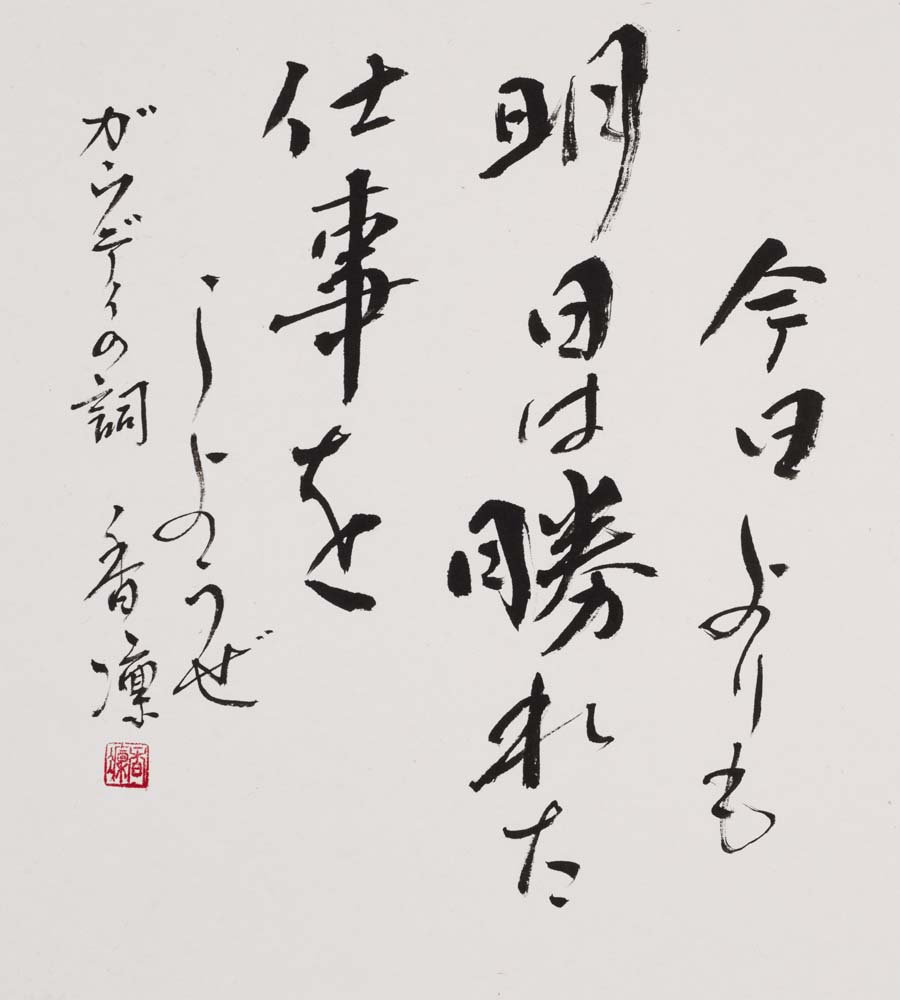 今日よりも
明日は勝れた
仕事を
しようぜ
ガウディの詞 香凜
香凜